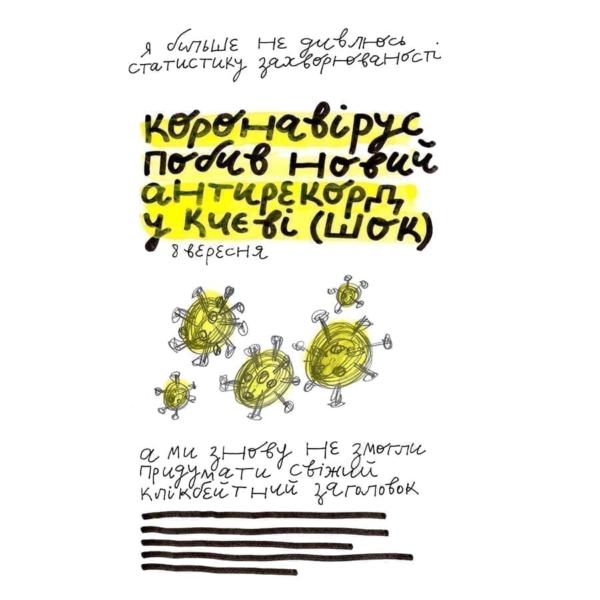 я більше не дивлюсь
статистику захворюваності
коронавірус
побив новий
антирекорд
у києві (шок)
8 вересня
а ми знову не змогли
придумати свіжий
клікбейтний заголовок